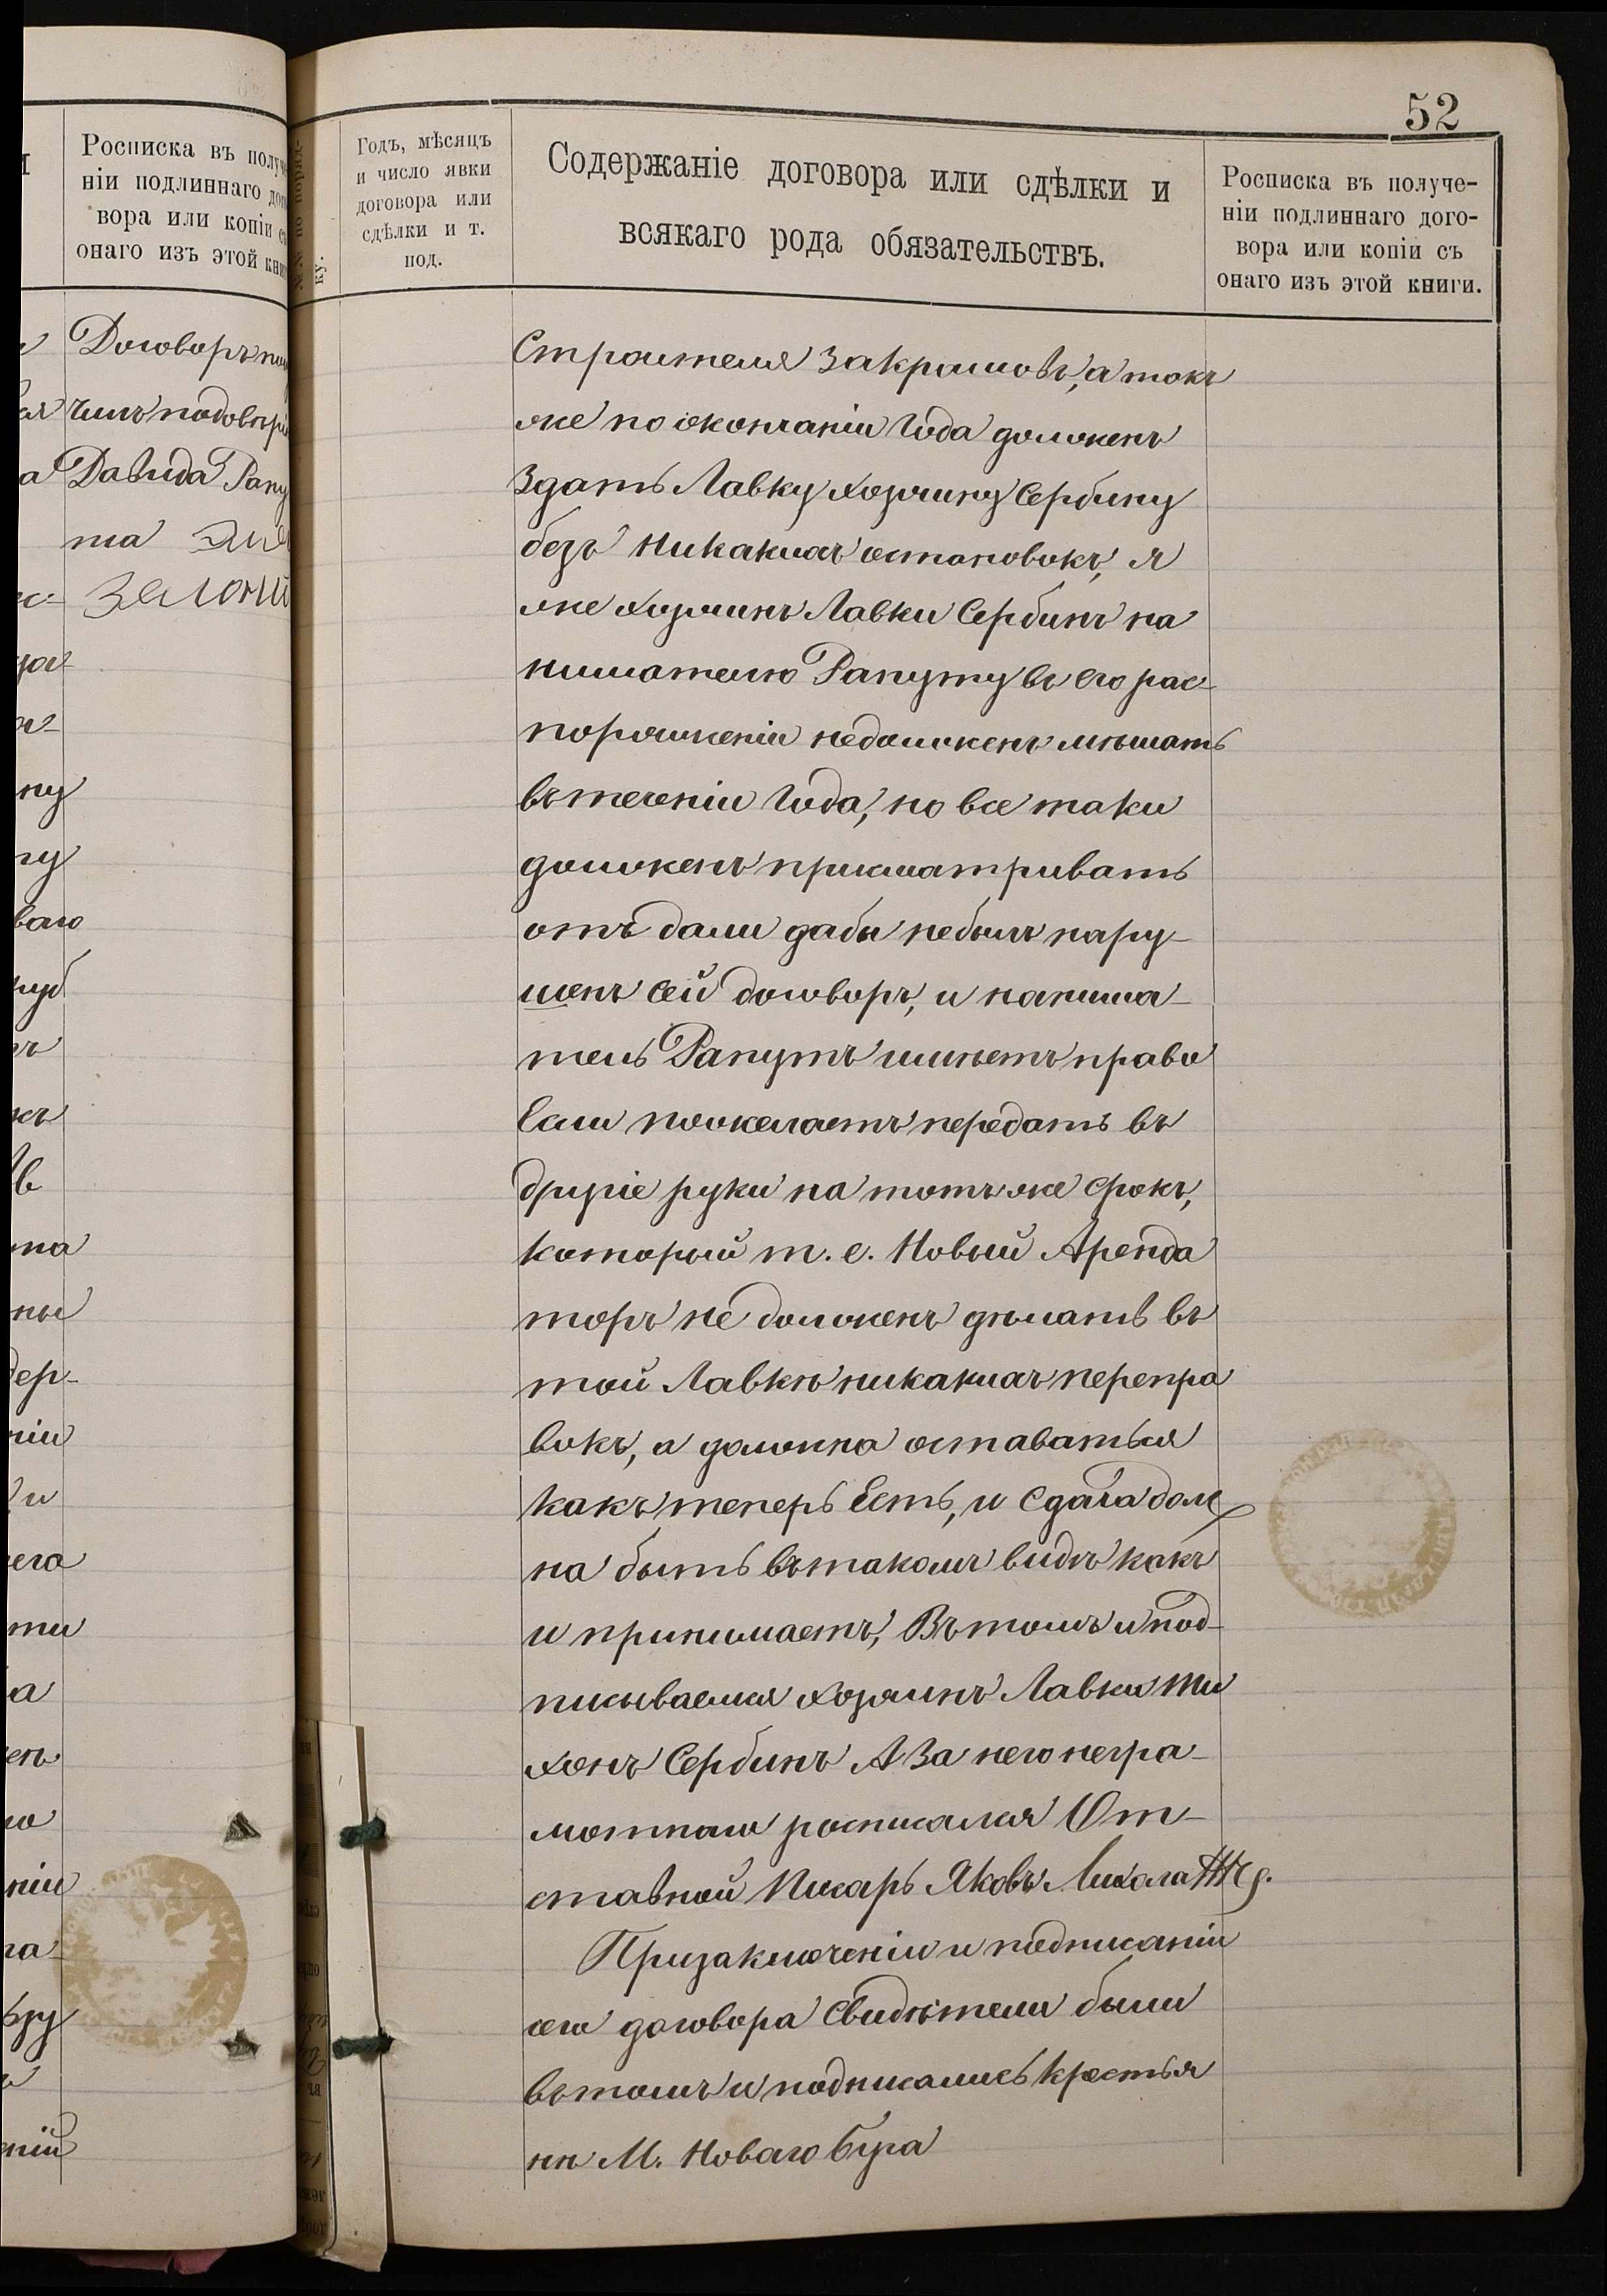 52
Росписка въ
ніи подлиннаго
вора или копіи
онаго изъ этой
Годъ, мѣсяцъ
и число явки
договора или
сдѣлки и т.
под.
Содержаніе договора или сдѣлки и
всякаго рода обязательствъ.
Росписка въ получе-
ніи подлиннаго дого-
вора или копіи съ
онаго изъ этой книги.
Договоръ
Давида
та
Строителя Закромовъ, а такъ
же по окончаніи Года долженъ
Здать Лавку хозяину Сербину
безъ Никакихъ остановокъ, я
же хозяинъ Лавки Сербинъ на
нимателю Рапуту въ его рас-
поряженіи недолженъ мѣшать
въ теченіи Года, но все таки
долженъ присматривать
отъ дали дабы небылъ нару-
шенъ сей договоръ, и нанима-
тель Рапутъ имѣетъ право
Если пожелаетъ передать въ
другіе руки на тотъ же срокъ,
который т. е. Новый Аренда
торъ не долженъ дѣлать въ
той Лавкѣ никакихъ перепра
вокъ, а должна оставаться
какъ теперь Есть, и Сдача долж
на быть въ такомъ видѣ какъ
и принимаетъ, Въ томъ и под-
писываемся хозяинъ Лавки Ти
хонъ Сербинъ А За него негра-
мотнаго росписался От-
ставной Писарь Яковъ
При заключеніи и подписаніи
сего договора Свидѣтели были
въ томъ и подписались Крестья
нѣ М. Новаго Буга